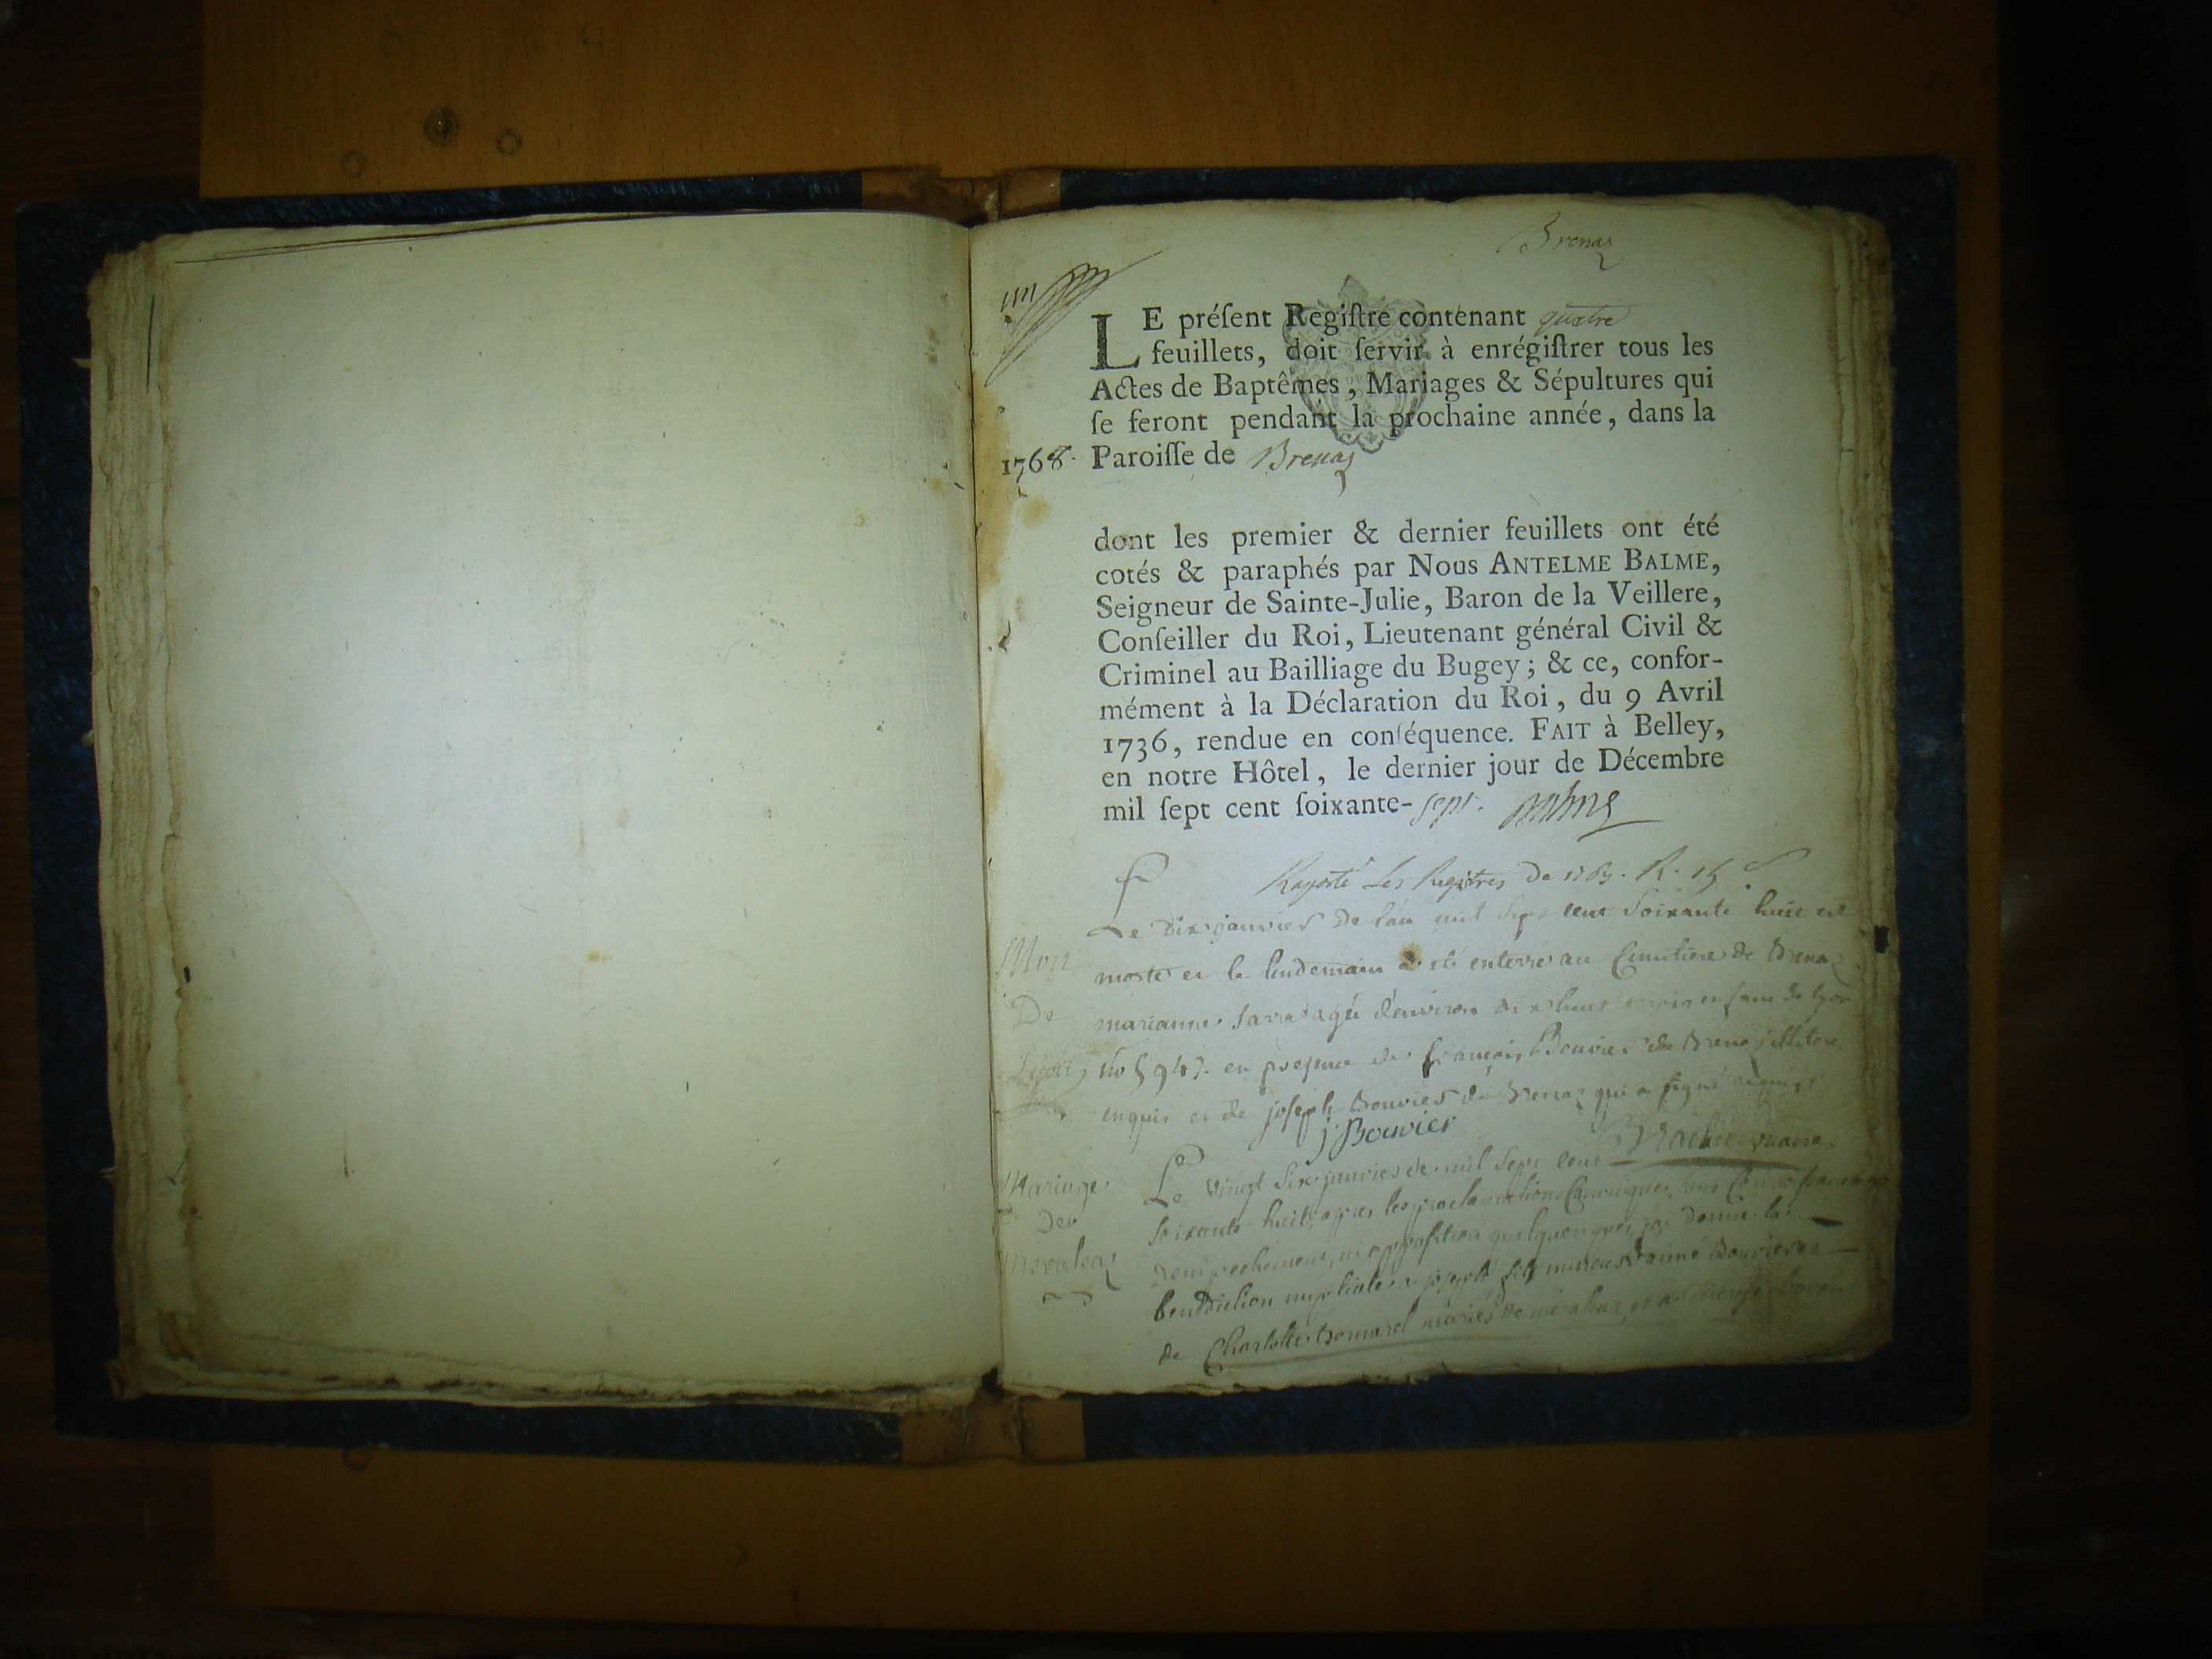 Brenaz
un
LE préſent Regiſtre contenant quatre
feuillets, doit ſervir à enrégiſtrer tous les
Actes de Baptêmes, Mariages & Sépultures qui
ſe feront pendant la prochaine année, dans la
1768. Paroiſſe de Brenaz
dont les premier & dernier feuillets ont été
cotés & paraphés par Nous ANTELME BALME,
Seigneur de Sainte-Julie, Baron de la Veillere,
Conſeiller du Roi, Lieutenant général Civil &
Criminel au Bailliage du Bugey; & ce, confor-
mément à la Déclaration du Roi, du 9 Avril
1736, rendue en conſéquence. FAIT à Belley,
en notre Hôtel, le dernier jour de Décembre
mil ſept cent ſoixante-ſept. Balme
Raporté Les Registres De
Le Dix janvier De l'an mil Sept cent Soixante huit est
Mort
morte et le lendemain a été enterré au Cimetiere de Brenaz
De
marianne agée d'environ dix huit enfant de Lyon
Lyon
no en presence de françois Bouvier de Brenaz
enquis et de joseph Bouvier de Brenaz qui a signé
j. Bouvier
Mariage
Le vingt Six janvier de mil Sept cent
De
Soixante huit, apres les proclamations Canoniques
D'empechement, ni opposition quelquonque, j'ay Donné la
benediction nuptiale a joseph fils mineur d'aimé Bouvier et
de Charlotte mariés de